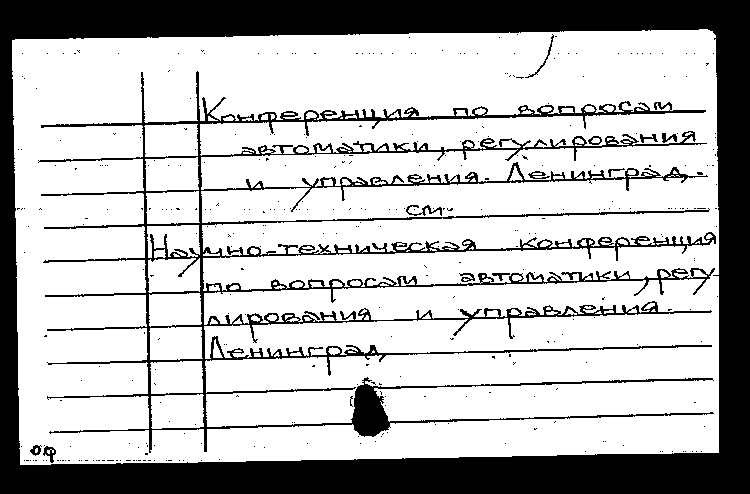 Конференция по вопросам
автоматики, регулирования
и управления. Ленинград.
см.
Научно-техническая конференция
по вопросам автоматики, регу
лирования и управления.
Ленинград
оф